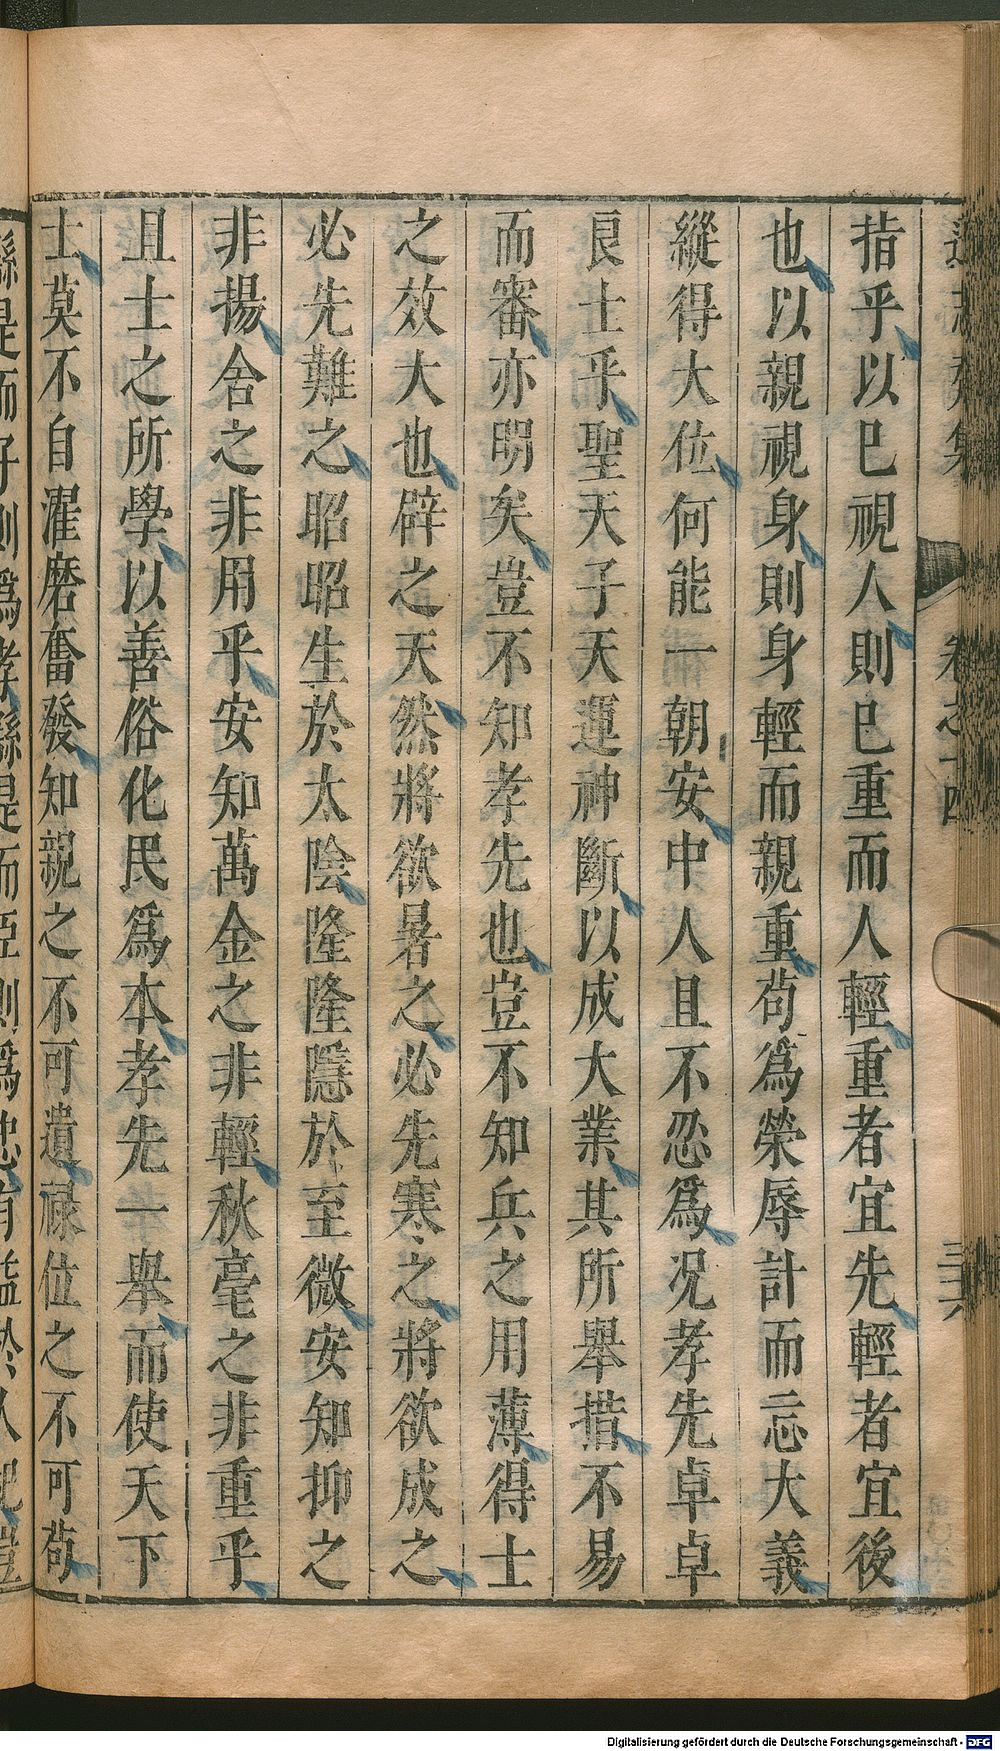 指乎以巳視人則巳重而人輕重者宜先輕者宜後
也以親視身則身輕而親重苟爲榮辱計而忘大義
縱得大位何能一朝安中人且不忍爲况孝先卓卓
良士乎聖天子天運神斷以成大業其所舉措不易
而審亦明矣豈不知孝先也豈不知兵之用薄得士
之效大也辟之天然將欲暑之必先寒之將欲成之
必先難之昭昭生於太陰隆隆隱於至微安知抑之
非揚舍之非用乎安知萬金之非輕秋毫之非重乎
且士之所學以善俗化民爲本孝先一舉而使天下
士莫不自濯磨奮發知親之不可遺祿位之不可苟
繇是而子則爲孝繇是而臣則爲忠有益於人紀豈
卷之十四
三六
Digitalisierung gefördert durch die Deutsche Forschungsgemeinschaft - DFG